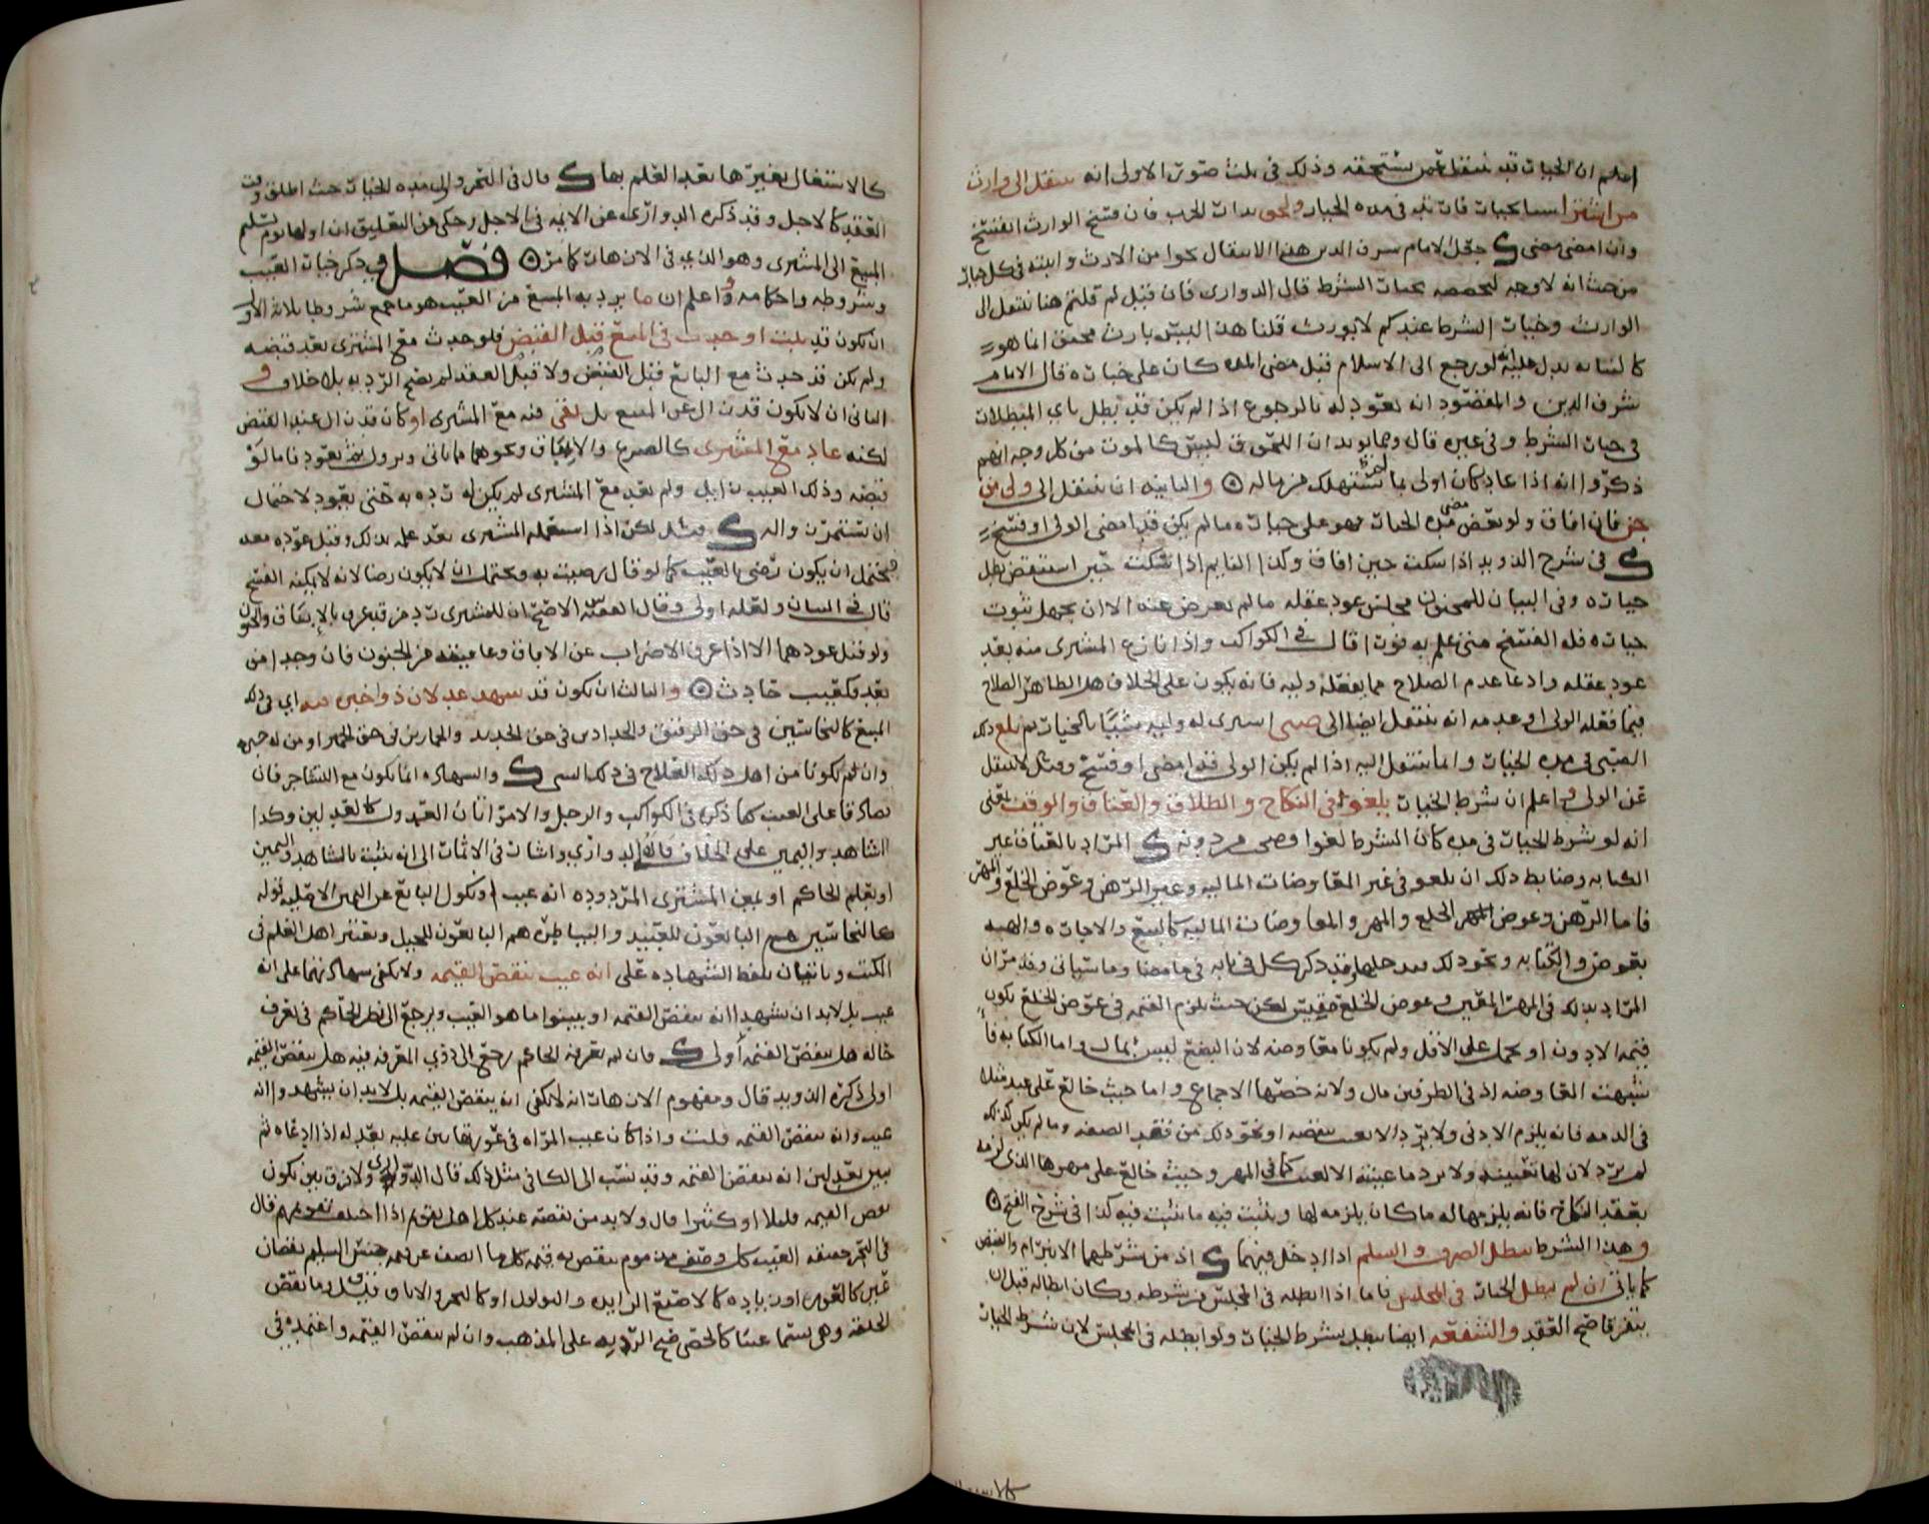 اعلم ان الخيار قد ينتقل عمن يستحقه وذلك في ثلث صور الاولى انه ينتقل الى وارث
من اشترا بخيار فان في مده الخيار ولحق بدار الحرب فان فسخ الوارث انفسخ
وان امضى مضى جعل الامام شرف الدين هذا الانتقال نحوا من الارث في كل خيار
من حيث انه لا وجه لتخصصه بخيار الشرط قال الدواري فان قيل لم قلتم هنا ينتقل الى
الوارث وخيار الشرط عندكم لا يورث قلنا هذا ليس بارث محقق انما هو
لو رجع الى الاسلام قبل مضى المده كان على خياره قال الامام
شرف الدين والمقصود انه يعود له بالرجوع اذا لم يكن قد بطل باي المبطلات
في خيار الشرط وفي غيره قال ومما يويد ان اللحوق ليس كالموت من كل وجه انهم
ذكروا انه اذا عاد كان اولى بما لم يستهلك من ماله والثانيه ان ينتقل الى ولى من
جن فان افاق ولو بعض مضى مده الخيار فهو على خياره ما لم يكن قد امضى الولى او فسخ
في شرح الذويد اذا سكت حين افاق وكذا النايم اذا سكت حين استيقض بطل
خياره وفي البيان للمجنون مجلس عود عقله ما لم يعرض عنه الا ان يجهل ثبوت
خياره فله الفسخ متى علم به فورا قال في الكواكب واذا نازع المشترى منه بعد
عود عقله وادعا عدم الصلاح مما يفعله وليه فانه يكون على الخلاف هل الظاهر الصلاح
فيما فعله الولى او عدمه انه ينتقل ايضا الى صبى اشترى له وليه شيئا بالخيار ثم بلغ ذلك
الصبى في مده الخيار وانما ينتقل اليه اذا لم يكن الولى قد امضى او فسخ
عن الولى واعلم ان شرط الخيار يلغوا في النكاح والطلاق والعتاق والوقف يعنى
انه لو شرط الخيار في مده كان الشرط لغوا وصحت من دونه المراد بالعتاق غير
الكتابه وضابط ذلك ان يلغو في غير المعاوضات الماليه وغير الرهن وعوض الخلع والمهر
فاما الرهن وعوض الخلع والمهر والمعاوضات الماليه كالبيع والاجاره والهبه
بعوض والكتابه ونحو ذلك فيدخلها وقد ذكر كل في بابه في ما مضا وما سياتى وقد مر ان
المراد بذلك في المهر المعين وعوض الخلع لكن حيث يلزم القيمه في عوض الخلع يكون
قيمه الادون او يحمل على الاقل ولم يكونا معاوضه لان البضع ليس بمال واما الكتابه
شبهت المعاوضه اذ في الطرفين مال ولانه خصها الاجماع واما حيث خالع على عبد مثلا
في الذمه فانه يلزم الادنى ولا يرد الا بعيب او نحو ذلك من فقد الصفه وما لم يكن كذلك
لم يرد لان لها تعيينه ولا يرد ما عينته الا لعيب كما في المهر وحيث خالع على مهرها الذي لزمه
بعقد النكاح فانه يلزمها له ما كان يلزمه لها ويثبت فيه ما يثبت فيه كذا في شرح الفتح
وهذا الشرط يبطل الصرف والسلم اذا دخل فيهما اذ من شرطهما الانبرام والقبض
كما ياتى ان لم يبطل الخيار في المجلس فاما اذا ابطله في المجلس من شرطه وكان ابطاله قبل ان
يتفرقا صح العقد والشفعه ايضا تبطل بشرط الخيار ولو ابطله في المجلس لان شرط الخيار
كالاشتغال بغيرها بعد العلم بها قال في البحر واول مده الخيار حيث اطلق وقت
العقد كالاجل وقد ذكره الدواري عن الائمه في الاجل وحكى عن التعليق ان اولها يوم تسليم
المبيع الى المشترى وهو الذي في الازهار كما مر فصل في ذكر خيار العيب
وشروطه واحكامه واعلم ان ما يرد به المبيع من العيب هو ما جمع شروطا ثلاثه الاول
ان يكون قد ثبت او حدث في المبيع قبل القبض فلو حدث مع المشترى بعد قبضه
ولم يكن قد حدث مع البائع قبل القبض ولا قبل العقد لم يصح الرد به بلا خلاف و
الثانى ان لا يكون قد زال عن المبيع بل بقى فيه مع المشترى او كان قد زال عند القبض
لكنه عاد مع المشترى كالصرع والاباق ونحوهما مما ياتى ويزول ثم يعود فاما لو
قبضه وذلك العيب زايل ولم يعد مع المشترى لم يكن له رده به حتى يعود لاحتمال
ان يستمر زواله لكن اذا استعمله المشترى بعد علمه بذلك وقبل عوده معه
فيحتمل ان يكون رضى بالعيب كما لو قال رضيت به ويحتمل ان لا يكون رضا لانه لا يمكنه الفسخ
قال في البيان ولعله اولى وقال الفقيه س الاصح ان للمشترى رد من قد عرف بالاباق والجنون
ولو قبل عودهما الا اذا عرف الاضراب عن الاباق وعافيته من الجنون فان وجدا من
بعد فكعيب حادث والثالث ان يكون قد شهد عدلان ذوا خبره فيه اي في ذلك
المبيع كالنخاسين في حق الرقيق والحدادين في حق الحديد والحمارين في حق الحمير او من له خبره
وان لم يكونا من اهل ذلك العلاج في ذلك الشى والشهاده انما تكون مع التشاجر فان
تصادقا على العيب كما ذكره في الكواكب والرجل والامراتان العدول كالعدلين وكذا
الشاهد واليمين على الخلاف قاله الدواري واشار في الاثمار الى انه يثبت بالشاهد واليمين
او بعلم الحاكم او يمين المشترى المردوده انه عيب او نكول البائع عن اليمين الاصليه
كالنخاسين هم البائعون للعبيد والبياطره هم البائعون للخيل ويعتبر اهل العلم في
الكتب وياتيان بلفظ الشهاده على انه عيب ينقص القيمه ولا يكفى شهادتهما على انه
عيب بل لا بد ان يشهدا انه ينقص القيمه او يبينوا ما هو العيب ويرجع الى نظر الحاكم في تعرف
حاله هل ينقص القيمه اولى فان لم يعرفه الحاكم رجع الى ذوي المعرفه فيه هل ينقص القيمه
اولى ذكره الذويد قال ومفهوم الازهار انه لا يكفى انه ينقص القيمه بل لا بد ان يشهدوا انه
عيب وانه ينقص القيمه قلت واذا كان عيب المراه في عورتها بين عليه بعدله اذا ادعاه ثم
يبين بعدلين انه ينقص القيمه وقد نسب الى الكافى مثل ذلك قال الدواري ولا فرق بين كون
نقص القيمه قليلا او كثيرا قال ولا بد من نقصه عند كل اهل التقويم اذا اختلف تقويمهم قال
في البحر العيب كل وصف مذموم ينقص به قيمه كل ما اتصف به عن قيمه جنس السليم نقصان
عين كالعور او زياده كالاصبع الزايده والثولول او كالبخر والاباق فقيل وما نقص
الخلقه وهى يسمى عيبا كالخصى فيصح الرد به على المذهب وان لم ينقص القيمه واعتمده في